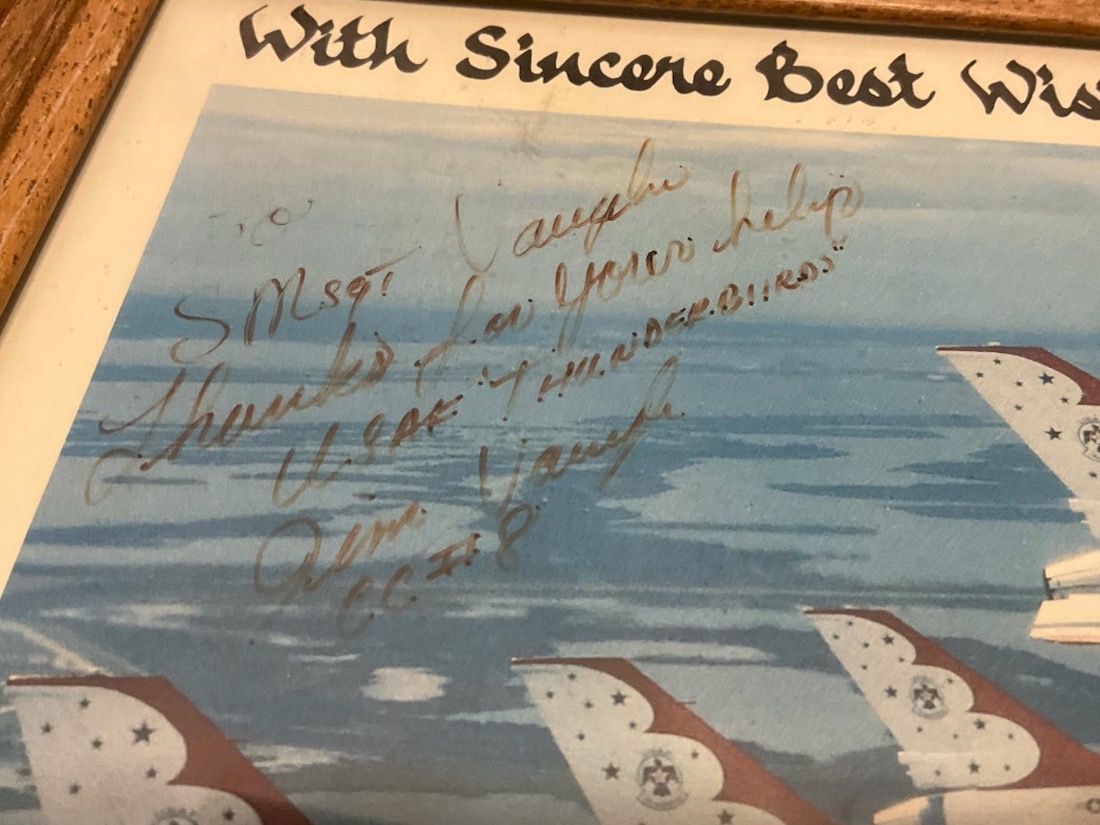 With Sincere Best Wis
To
SMsgt Vaughn
Thanks for your help
USAF "THUNDERBIRDS"
Jim Vaughn
CC #8